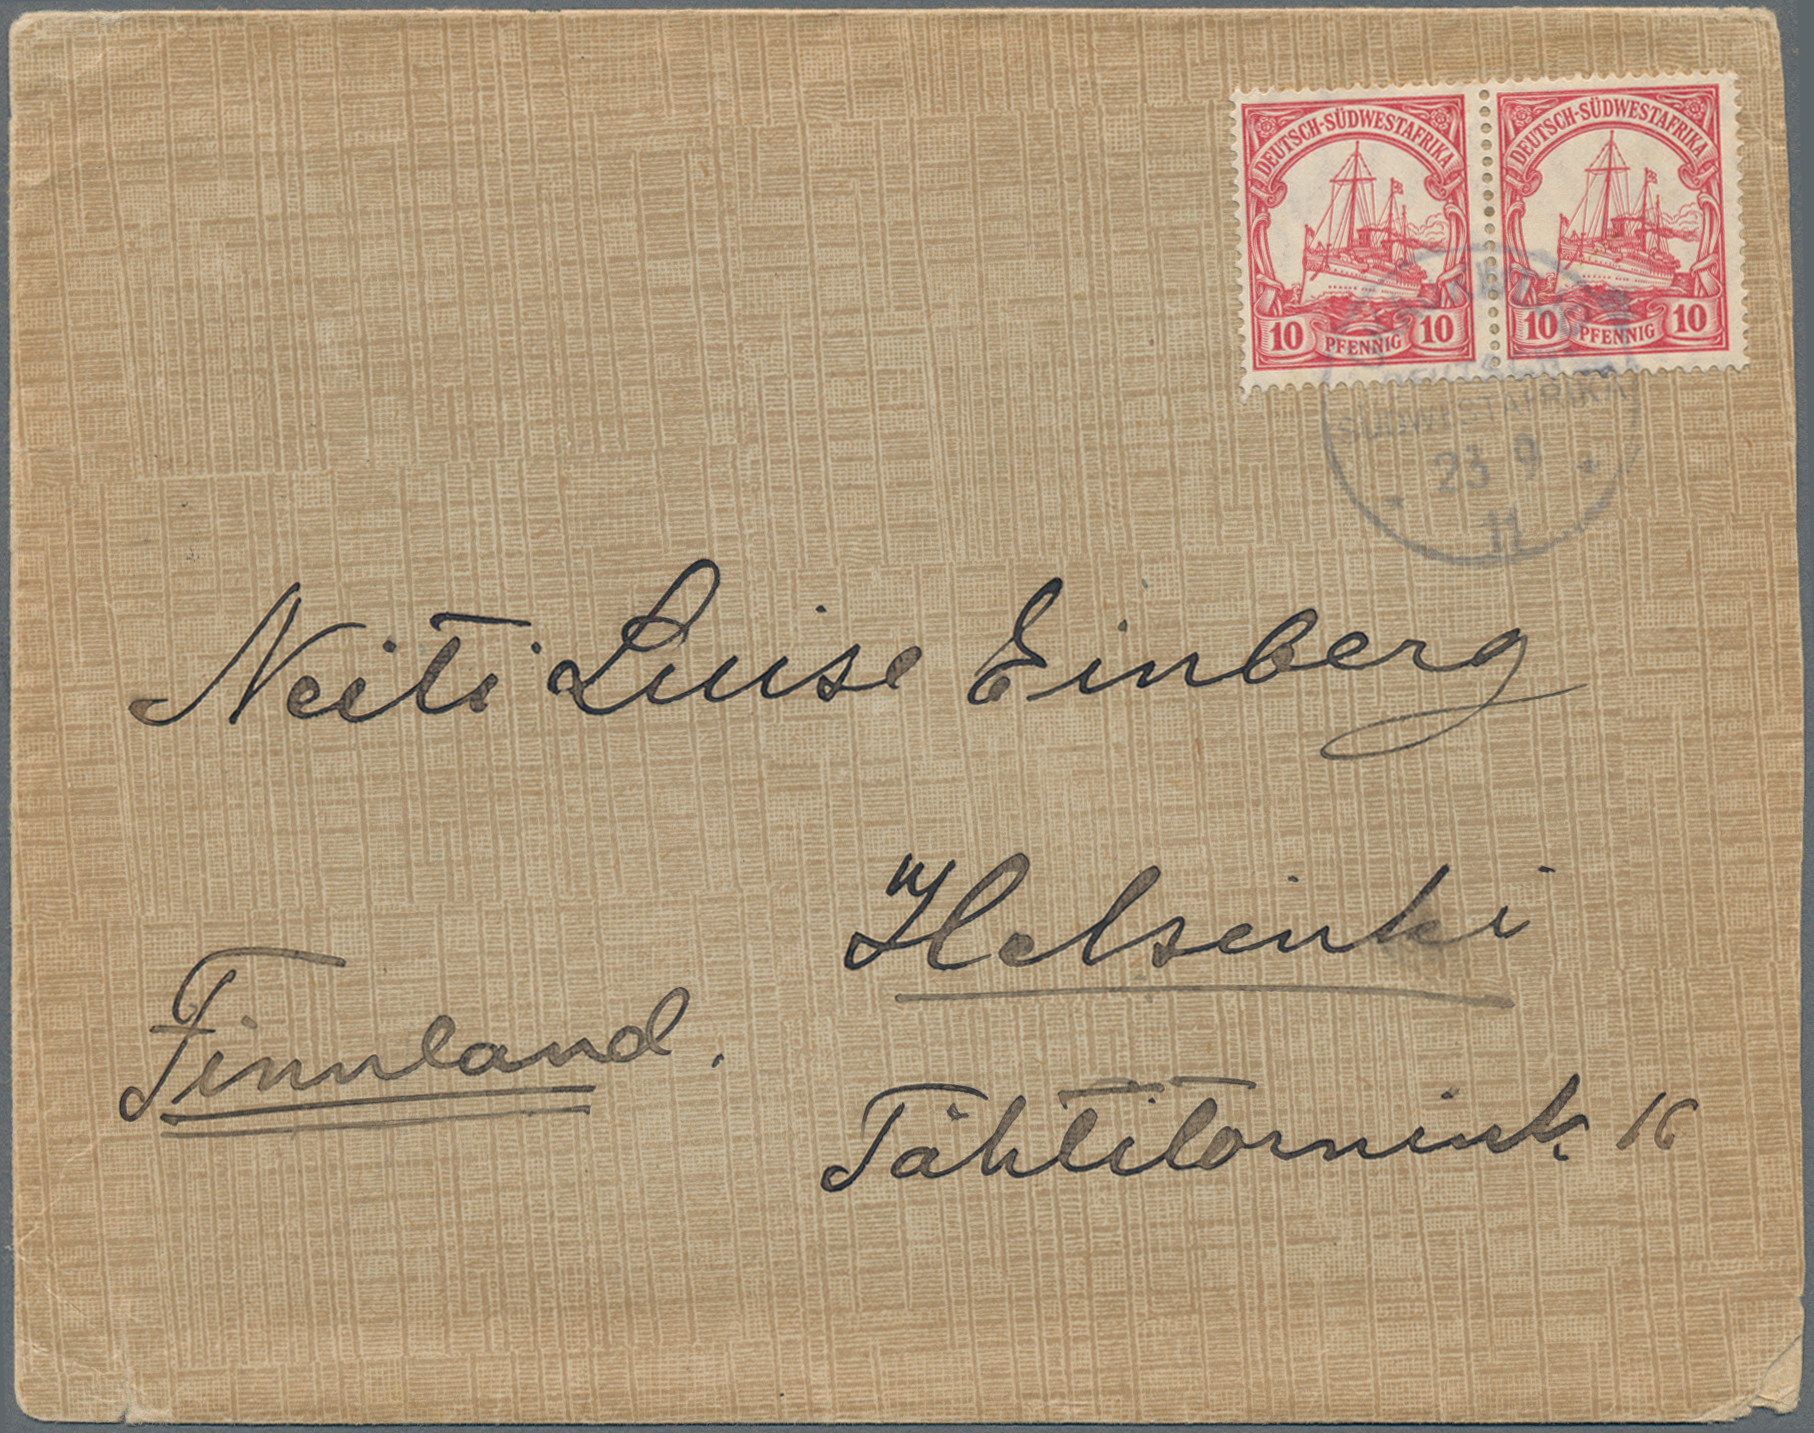 DEUTSCH-SÜDWESTAFRIKA
10 PFENNIG 10
DEUTSCH-SÜDWESTAFRIKA
10 PFENNIG 10
DEUTSCH
SÜDWESTAFRIKA
23 9
11
Neiti Luise Einberg
Helsinki
Finnland.
Tähtitornink. 16